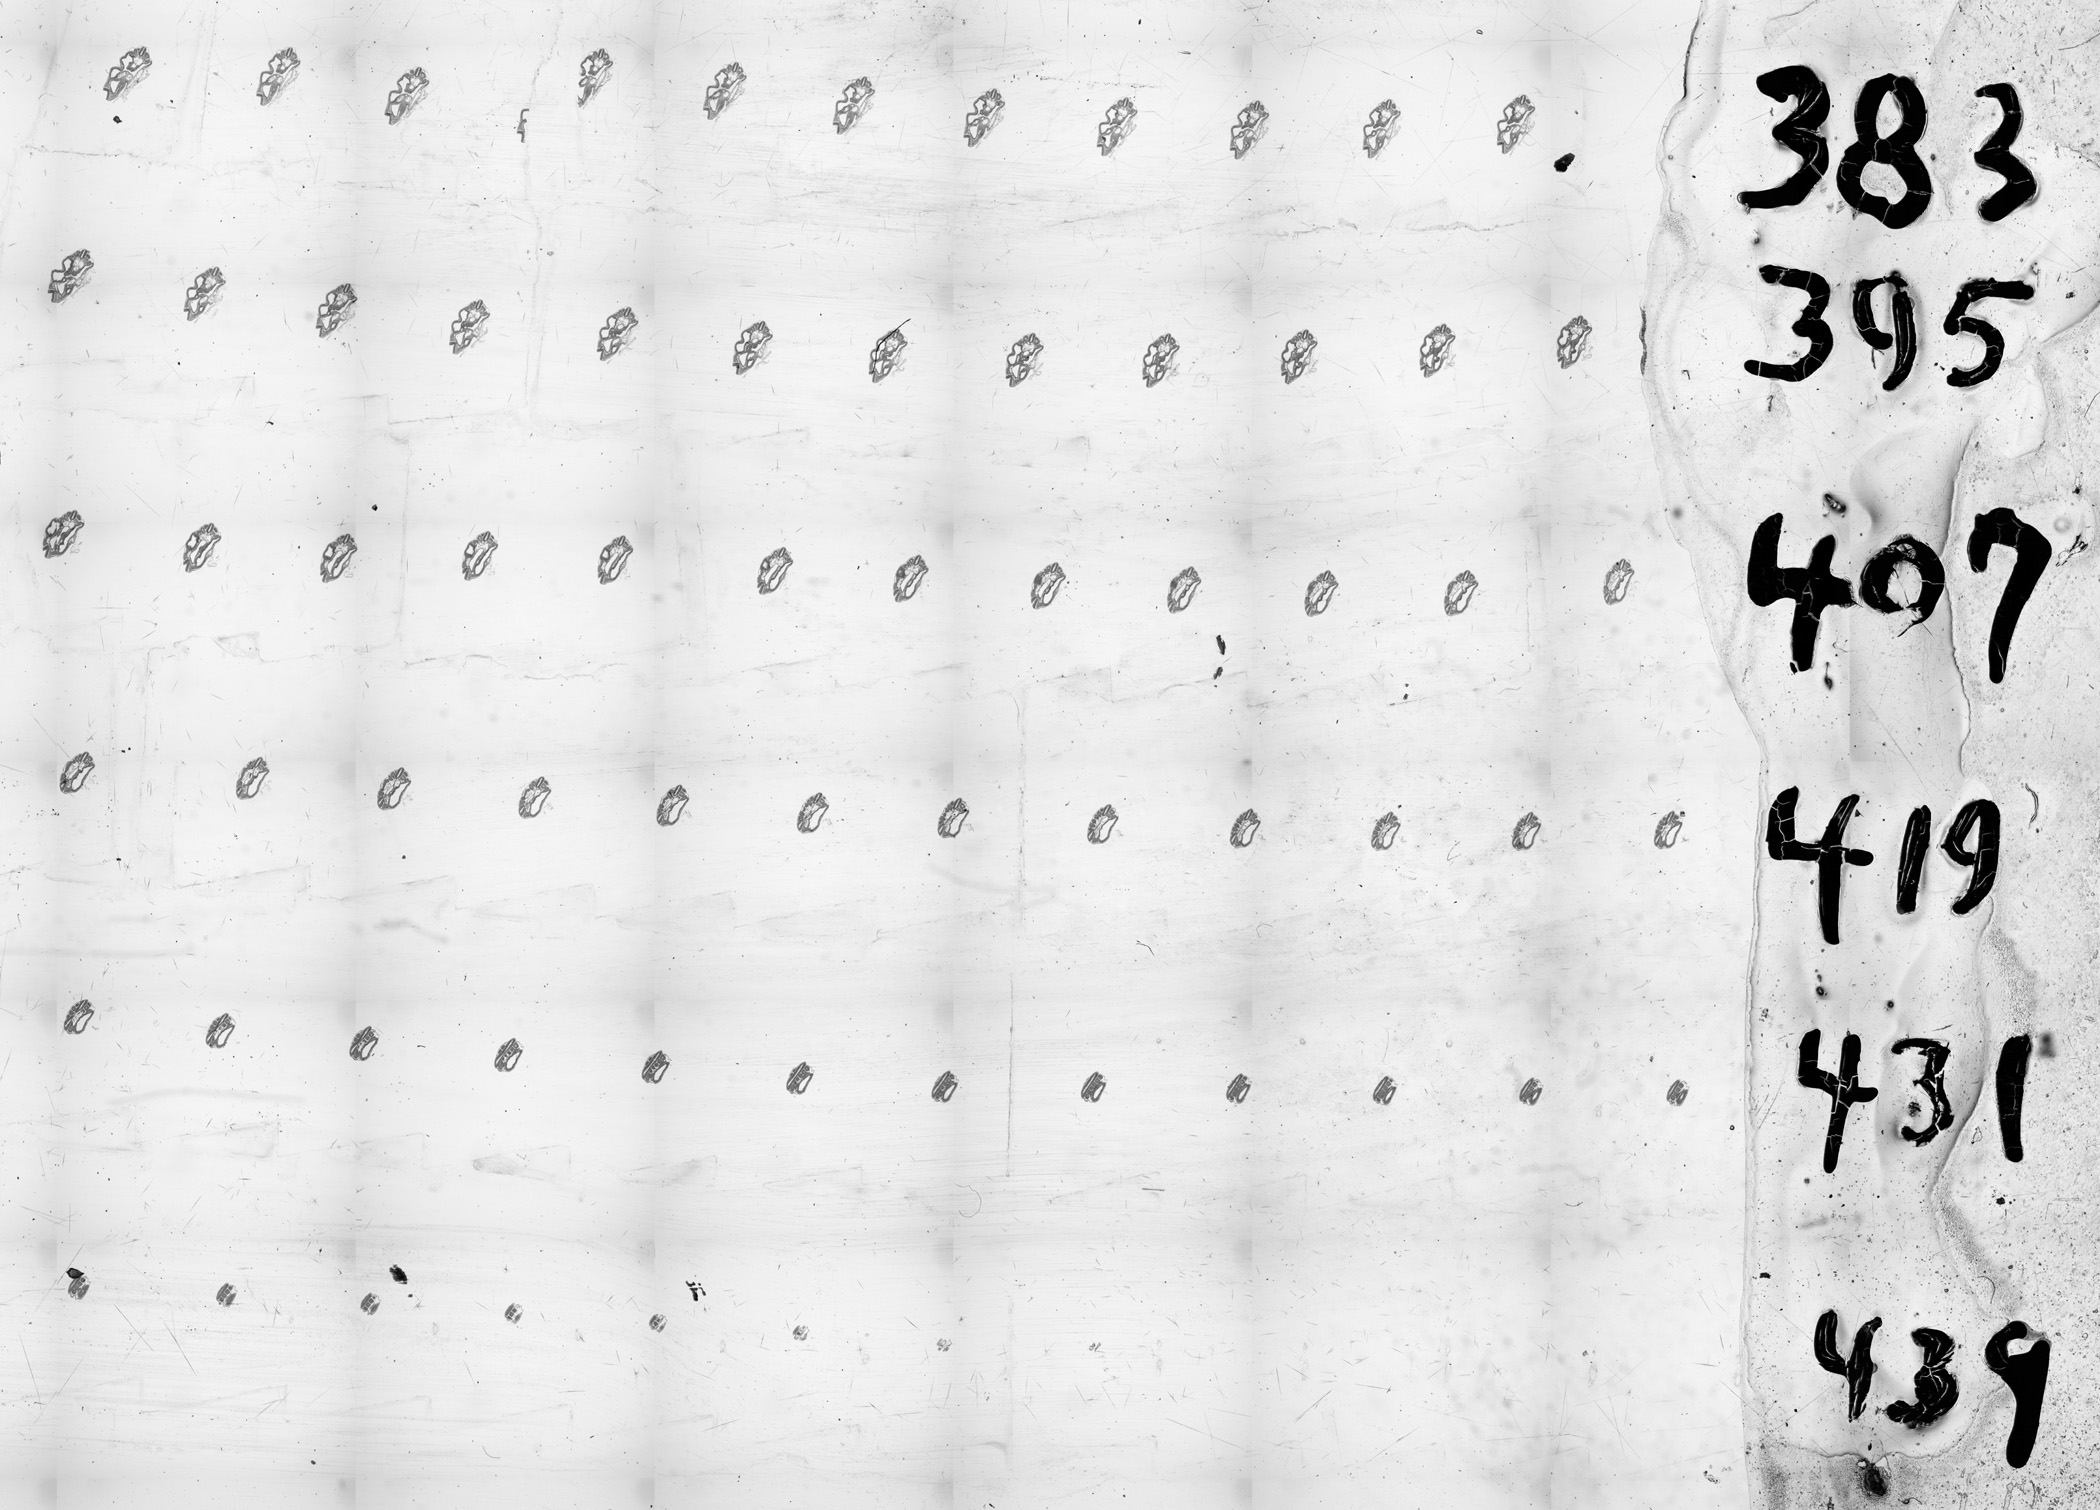 383
395
407
419
431
439